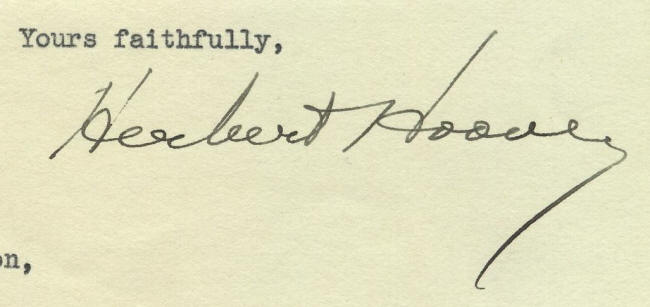 Yours faithfully,
Herbert Hoover
on,